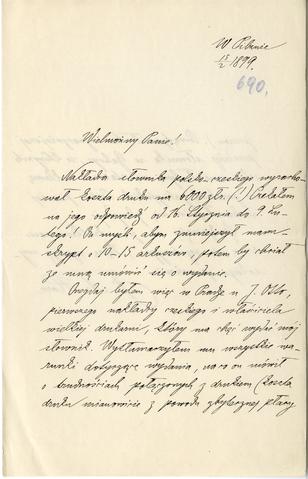 W Pilznie
15/2 1899.
690.
Wielmożny Panie!
Nakładca słownika polsko-czeskiego wyracho-
wał koszta druku na 6000 złr. (!) Czekałem
na jego odpowiedź od 16. Stycznia do 9. Lu-
tego! On myśli, abym zmniejszył man-
skrypt o 10-15 arkuszów, potem by chciał
ze mną umówić się o wydanie.
Onegdaj byłem więc w Pradze u J. Otto,
pierwszego nakładcy czeskiego i właściciela
wielkiej drukarni, który ma chęć wydać mój
słownik. Wytłumaczyłem mu wszystkie wa-
runki dotyczące wydania, na co on mówił
o trudnościach połączonych z drukiem (koszta
druku mianowicie z powodu zbytecznej płacy